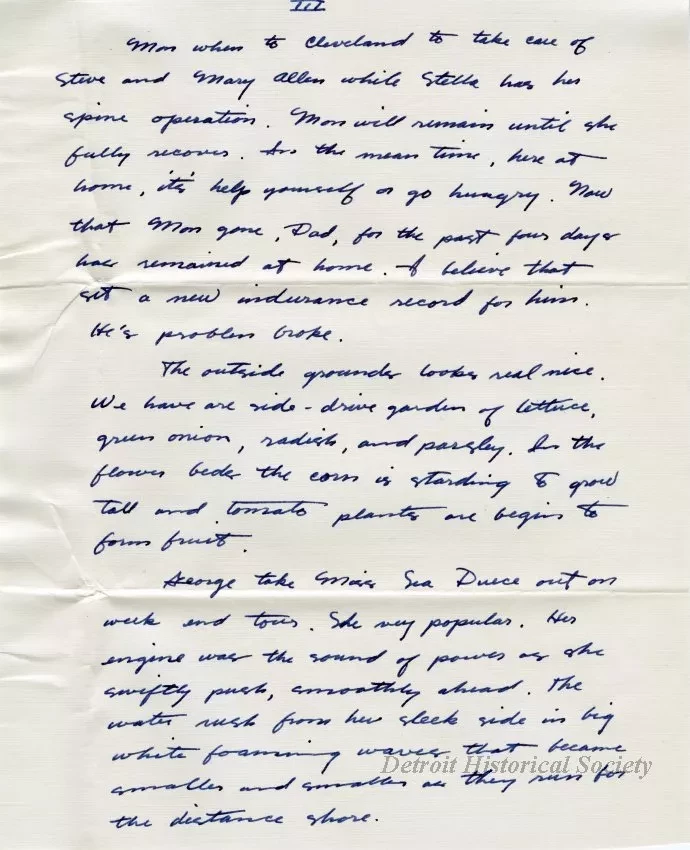 III
Mom when to Cleveland to take care of
Steve and Mary Allen while Stella has her
spine operation. Mom will remain until she
fully recovers. In the mean time, here at
home, it's help yourself or go hungry. Now
that Mom gone, Dad, for the past four days
has remained at home. I believe that
set a new indurance record for him.
He's problem broke.
The outside grounds looks real nice.
We have are side-drive garden of lettuce,
green onion, radish, and parsley. In the
flower beds the corn is starding to grow
tall and tomato plants are begins to
form fruit.
George take Miss Sea Duece out on
week end tours. She very popular. Her
engine was the sound of power as she
swiftly push, smoothly ahead. The
water rush from her sleek side in big
white foamming waves that became
smaller and smaller as they run for
the distance shore.
Detroit Historical Society